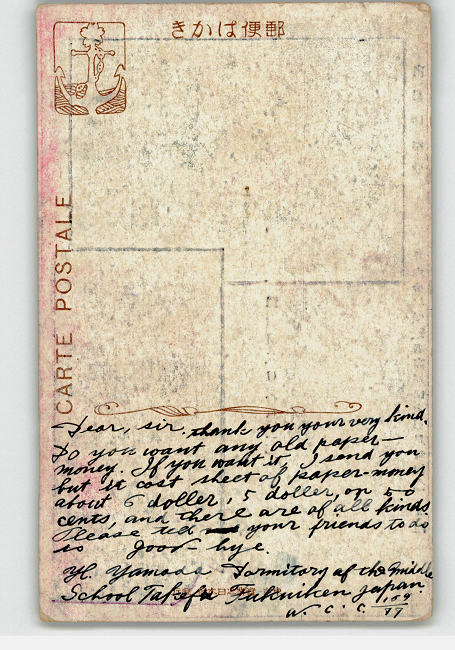 きかは便郵
CARTE POSTALE
Dear, sir. thank you your very kind.
Do you want any old paper—
money. If you want it, I send you
but it cost sheet of paper-money
about 6 doller, 5 doller, or 50
cents, and there are of all kinds.
Please tell your friends to do
so good-bye.
Y. Yamada Dormitory of the middle
School Takefu Fukuiken japan.
W. C. C. 109/77